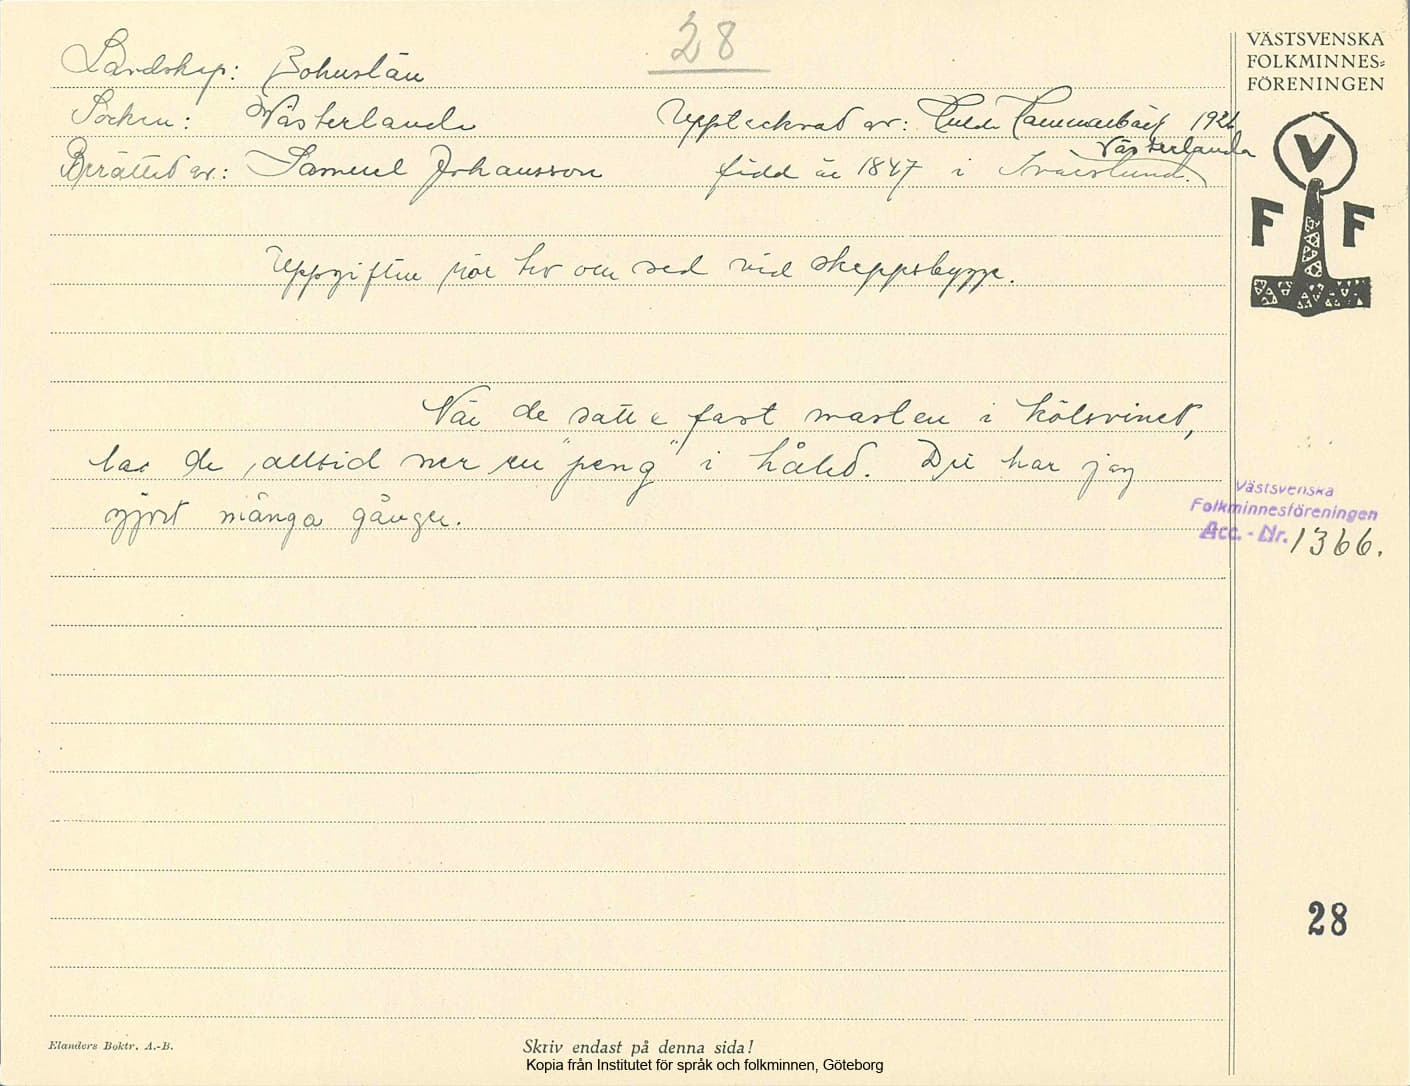 28
VÄSTSVENSKA
FOLKMINNES=
FÖRENINGEN
Landskap: Bohuslän
Socken: Västerlanda Upptecknad av: Hulda Hammarbäck 192
Berättad av: Samuel Johansson född år 1847 i Västerlanda
V
F F
Uppgiften rör tro och sed vid skeppsbygge.
När de satte fast masten i kölsvinet,
la de alltid ner en "peng" i hålet. Det har jag
gjort många gånger.
Västsvenska
Folkminnesföreningen
Acc. - Nr. 1366.
28
Elanders Boktr. A.-B.
Skriv endast på denna sida!
Kopia från Institutet för språk och folkminnen, Göteborg